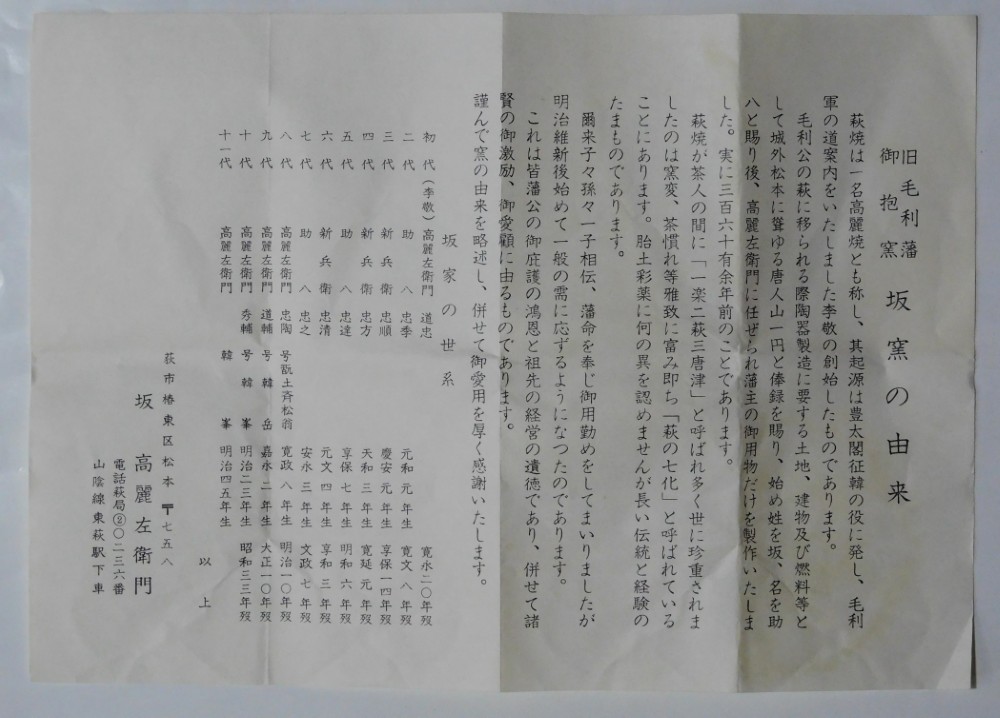 旧毛利藩
御抱窯
坂窯の由来
萩焼は一名高麗焼とも称し、其起源は豊太閤征韓の役に発し、毛利
軍の道案内をいたしました李敬の創始したものであります。
毛利公の萩に移られる際陶器製造に要する土地、建物及び燃料等と
して城外松本に聳ゆる唐人山一円と俸録を賜り、始め姓を坂、名を助
八と賜り後、高麗左衛門に任ぜられ藩主の御用物だけを製作いたしま
した。実に三百六十有余年前のことであります。
萩焼が茶人の間に「一楽二萩三唐津」と呼ばれ多く世に珍重されま
したのは窯変、茶慣れ等雅致に富み即ち「萩の七化」と呼ばれている
ことにあります。胎土彩薬に何の異を認めませんが長い伝統と経験の
たまものであります。
爾来子々孫々一子相伝、藩命を奉じ御用勤めをしてまいりましたが
明治維新後始めて一般の需に応ずるようになつたのであります。
これは皆藩公の御庇護の鴻恩と祖先の経営の遺徳であり、併せて諸
賢の御激励、御愛顧に由るものであります。
謹んで窯の由来を略述し、併せて御愛用を厚く感謝いたします。
坂家の世系
初代(李敬)高麗左衛門 道忠 寛永二〇年歿
二代 助八 忠季 元和元年生 寛文八年歿
三代 新兵衛 忠順 慶安元年生 享保一四年歿
四代 新兵衛 忠方 天和三年生 寛延元年歿
五代 助八 忠達 享保七年生 明和六年歿
六代 新兵衛 忠清 元文四年生 享和三年歿
七代 助八 忠之 安永三年生 文政七年歿
八代 高麗左衛門 忠陶 号翫土斉松翁 寛政八年生 明治一〇年歿
九代 高麗左衛門 道輔 号韓岳 嘉永二年生 大正一〇年歿
十代 高麗左衛門 秀輔 号韓峯 明治二三年生 昭和三三年歿
十一代 韓峯 明治四五年生
以上
萩市椿東区松本 〒七五八
坂高麗左衛門
電話萩局②〇二三六番
山陰線東萩駅下車